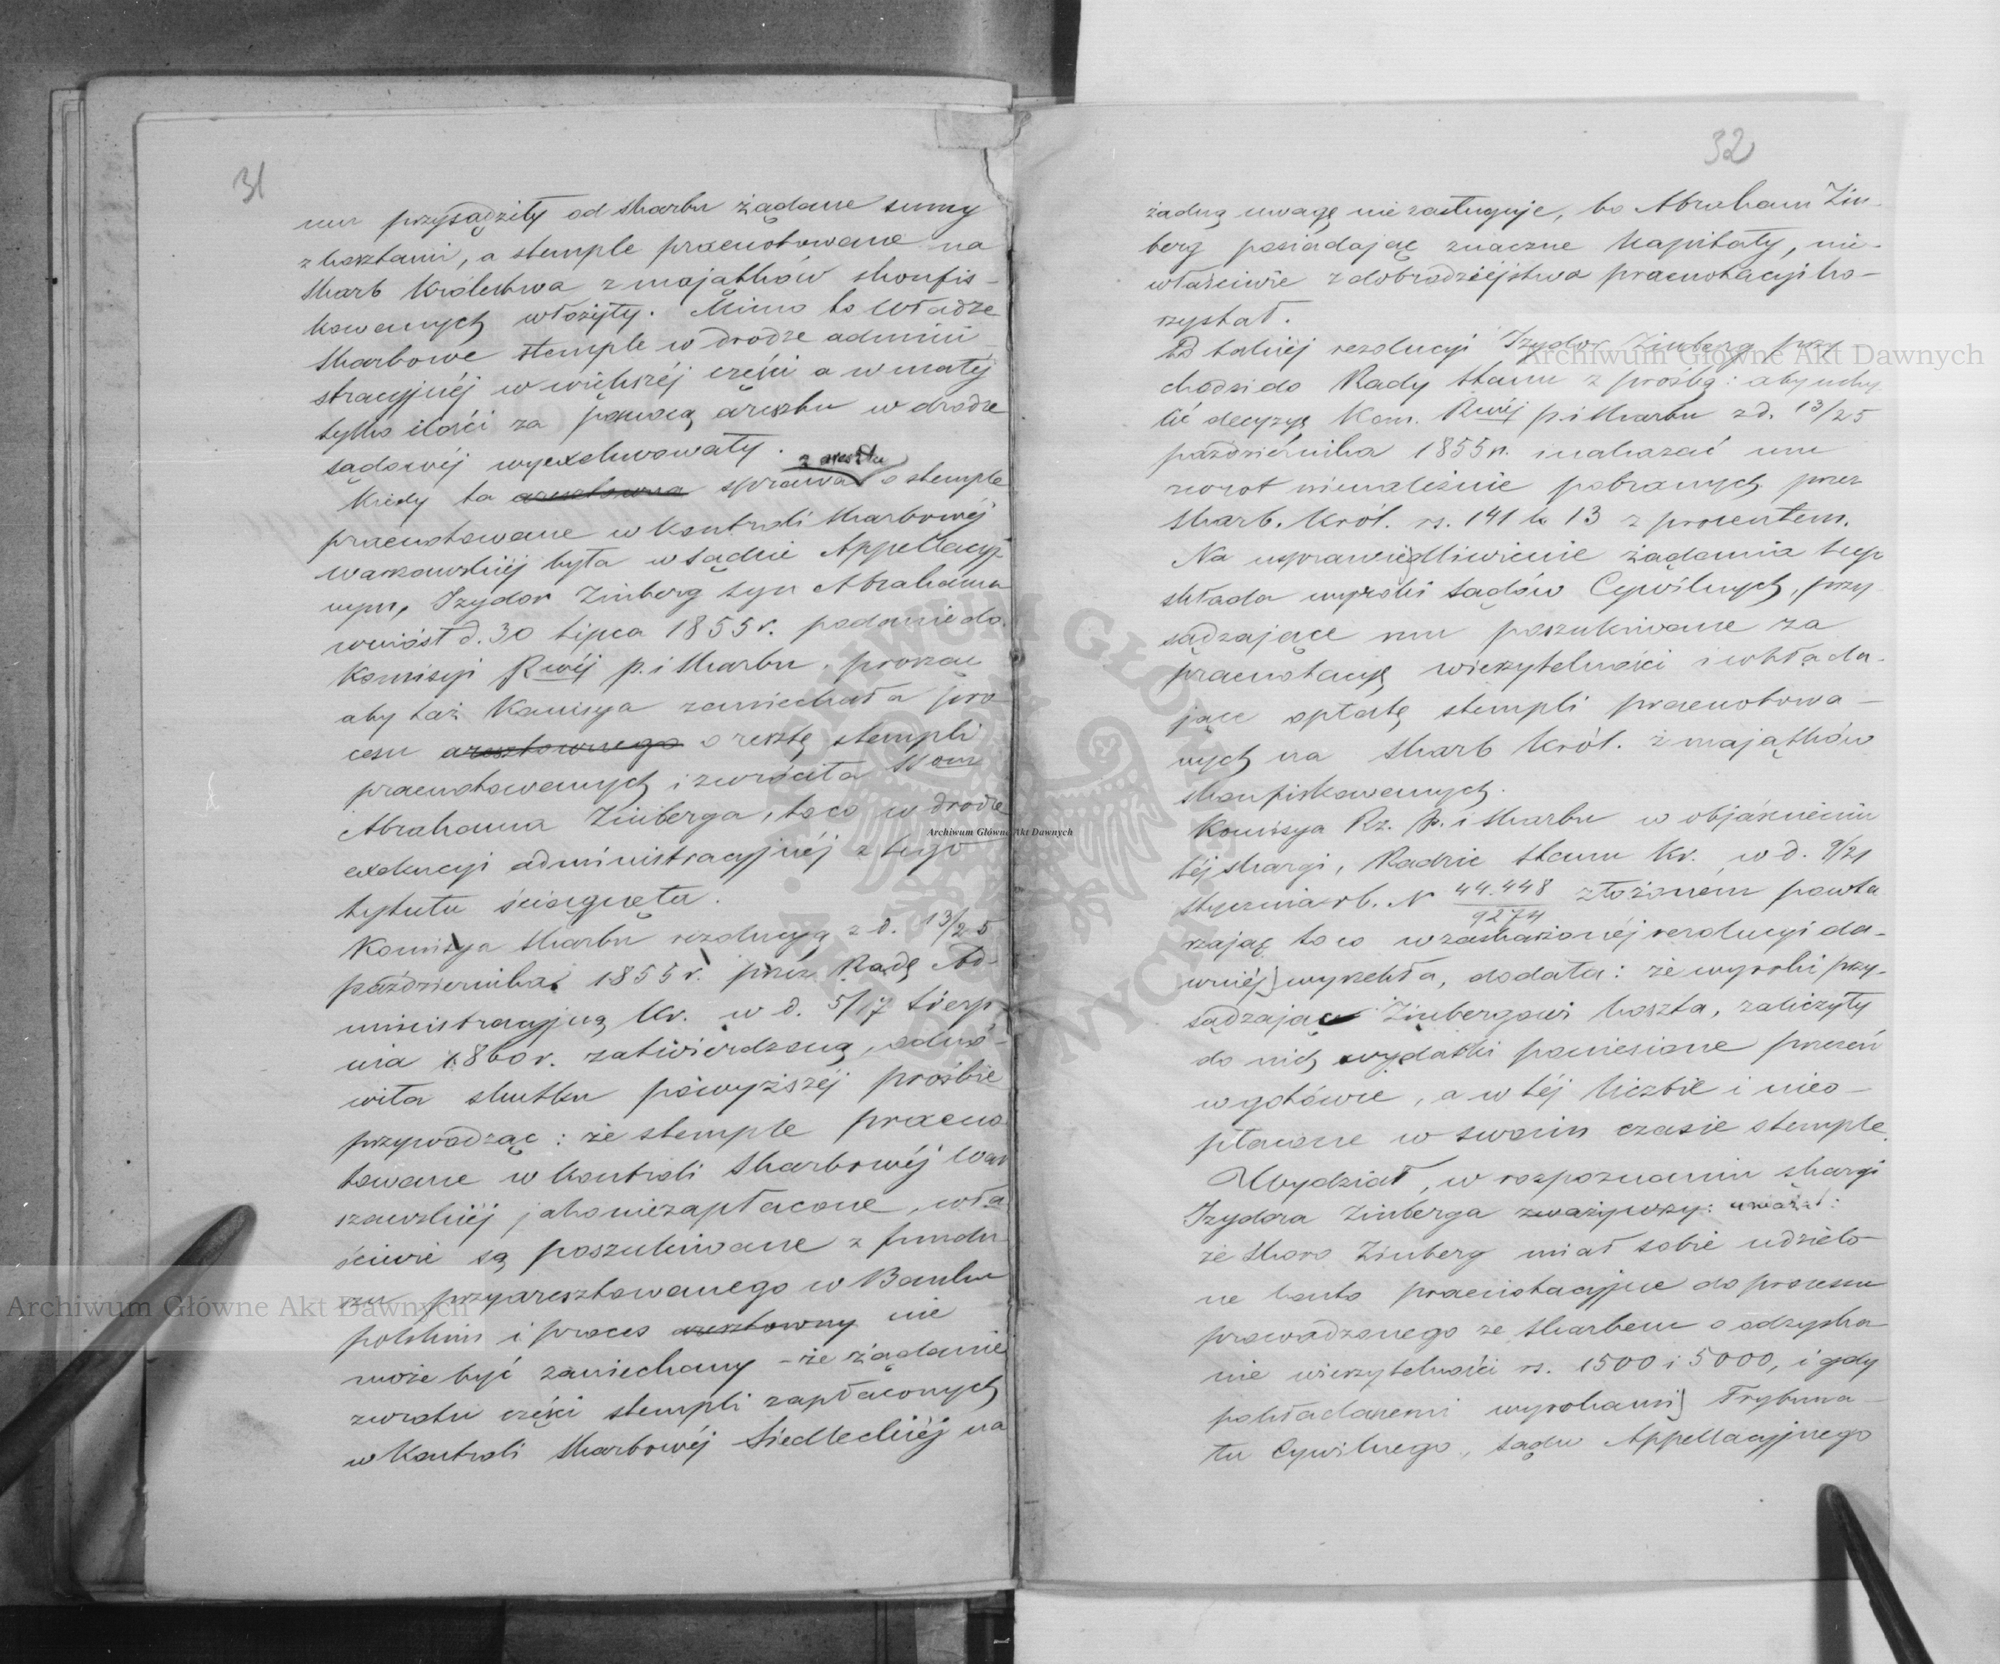 31
mu przysądziły od skarbu żądane sumy
z kosztami, a stemple praenotowane na
skarb Królestwa z majątków skonfis-
kowanych włożyły. Mimo to Władze
skarbowe stemple w drodze admini
stracyjnéj w większéj części a w małéj
tylko ilości za pomocą aresztu w drodze
sądowéj wyexekwowały.
Kiedy ta aresztowna sprawa z aresztu o stemple
praenotowane w Kontroli skarbowéj
warszawskiéj była w Sądzie Appellacyj-
nym, Izydor Zinberg syn Abrahama
wniósł d. 30 Lipca 1855 r. podanie do
Komisyi Rwéj p. i skarbu, prosząc
aby taż Komisya zaniechała pro
cesu aresztownego o resztę stempli
praenotowanych i zwróciła
Abrahama Zinberga, to co w drodze
exekucyi administracyjnéj z tego
tytułu ściągnęła.
Komisya skarbu rezolucyą z d. 13/25
października 1855 r. przez Radę Ad-
ministracyjną Kr. w d. 5/17 Sierp
nia 1860 r. zatwierdzoną, odmó-
wiła skutku powyższéj prośbie
przywodząc: że stemple praeno
towane w kontroli skarbowéj War
szawskiéj jako niezapłacone, wła
ściwie są poszukiwane z fundu-
szu przyaresztowanego w Banku
polskim i proces aresztowny nie
może być zaniechany – że żądanie
zwrotu części stempli zapłaconych
w Kontroli skarbowéj Siedleckiéj na
32
żadną uwagę nie zasługuje, bo Abraham Zin-
berg posiadając znaczne kapitały, nie-
właściwie z dobrodziejstwa praenotacyi ko-
rzystał.
Od takiéj rezolucyi Izydor Zinberg przy
chodzi do Rady Stanu z prośbą: aby uchy
lić decyzyę Kom. Rwéj p. i skarbu z d. 13/25
października 1855 r. i nakazać mu
zwrot nienależnie pobranych przez
Skarb. Król. rs. 141 k 13 z procentem.
Na usprawiedliwienie żądania tego
składa wyroki Sądów Cywilnych, przy
sądzające mu poszukiwane za
praenotacyą wierzytelności i wkłada-
jące opłatę stempli praenotowa-
nych na skarb Król. z majątków
skonfiskowanych.
Komisya Rz. p. i skarbu w objaśnieniu
téj skargi, Radzie Stanu Kr. w d. 9/21
stycznia r b. N 44.448/9274 złożoném powta
rzając to co w zaskarżonéj rezolucyi da-
wniéj wyrzekła, dodała: że wyroki przy-
sądzające Zinbergowi koszta, zaliczyły
do nich wydatki poniesione przezeń
w gotówce, a w téj liczbie i nieo-
płacone w swoim czasie stemple.
Wydział, w rozpoznaniu skargi
Izydora Zinberga zważywszy: uważał:
że skoro Zinberg miał sobie udzielo-
ne konto praenotacyjne do procesu
prowadzonego ze skarbem o odzyska-
nie wierzytelności rs. 1500 i 5000, i gdy
pokładanemi wyrokami Trybuna-
łu Cywilnego, Sądu Appellacyjnego
Archiwum Główne Akt Dawnych
Archiwum Główne Akt Dawnych
Archiwum Główne Akt Dawnych